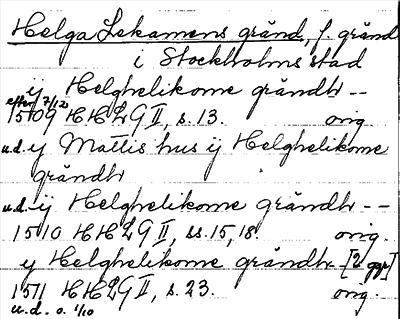 Helga Lekamens gränd, f. gränd
i Stockholms stad
ij Helghelikome grändh --
efter 7/12
1509 HH 2 G II, s. 13. orig.
u.d. ij Mattis hus ij Helghelikome
grändh
u.d. ij Helghelikome grändh --
1510 HH 2 G II, ss. 15, 18. orig.
ij Helghelikome grändh [2 ggr]
1511 HH 2 G II, s. 23. orig.
u.d. o. 1/10